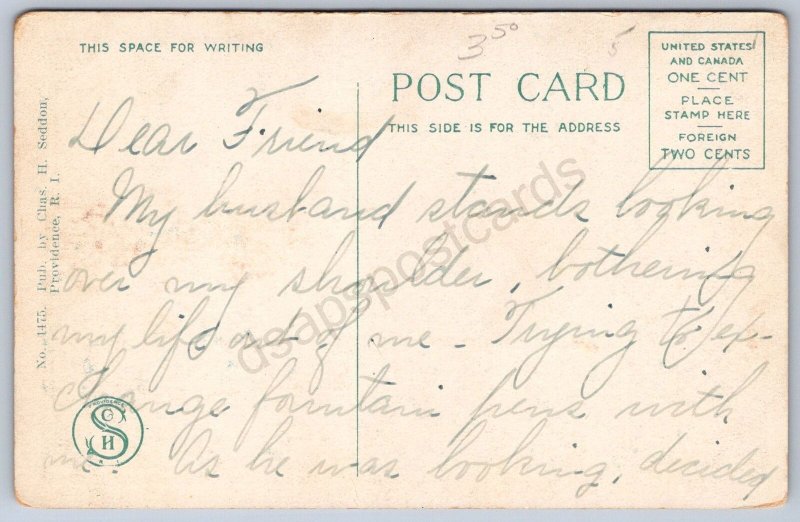 3 50
5
THIS SPACE FOR WRITING
POST CARD
THIS SIDE IS FOR THE ADDRESS
UNITED STATES
AND CANADA
ONE CENT
PLACE
STAMP HERE
FOREIGN
TWO CENTS
No. 4475. Pub. by Chas. H. Seddon,
Providence, R. I.
Dear Friend
My husband stands looking
over my shoulder, bothering
my life out of me - Trying to ex-
change fountain pens with
me. As he was looking, decided
PROVIDENCE
S
C
H
R I
dsapspostcards